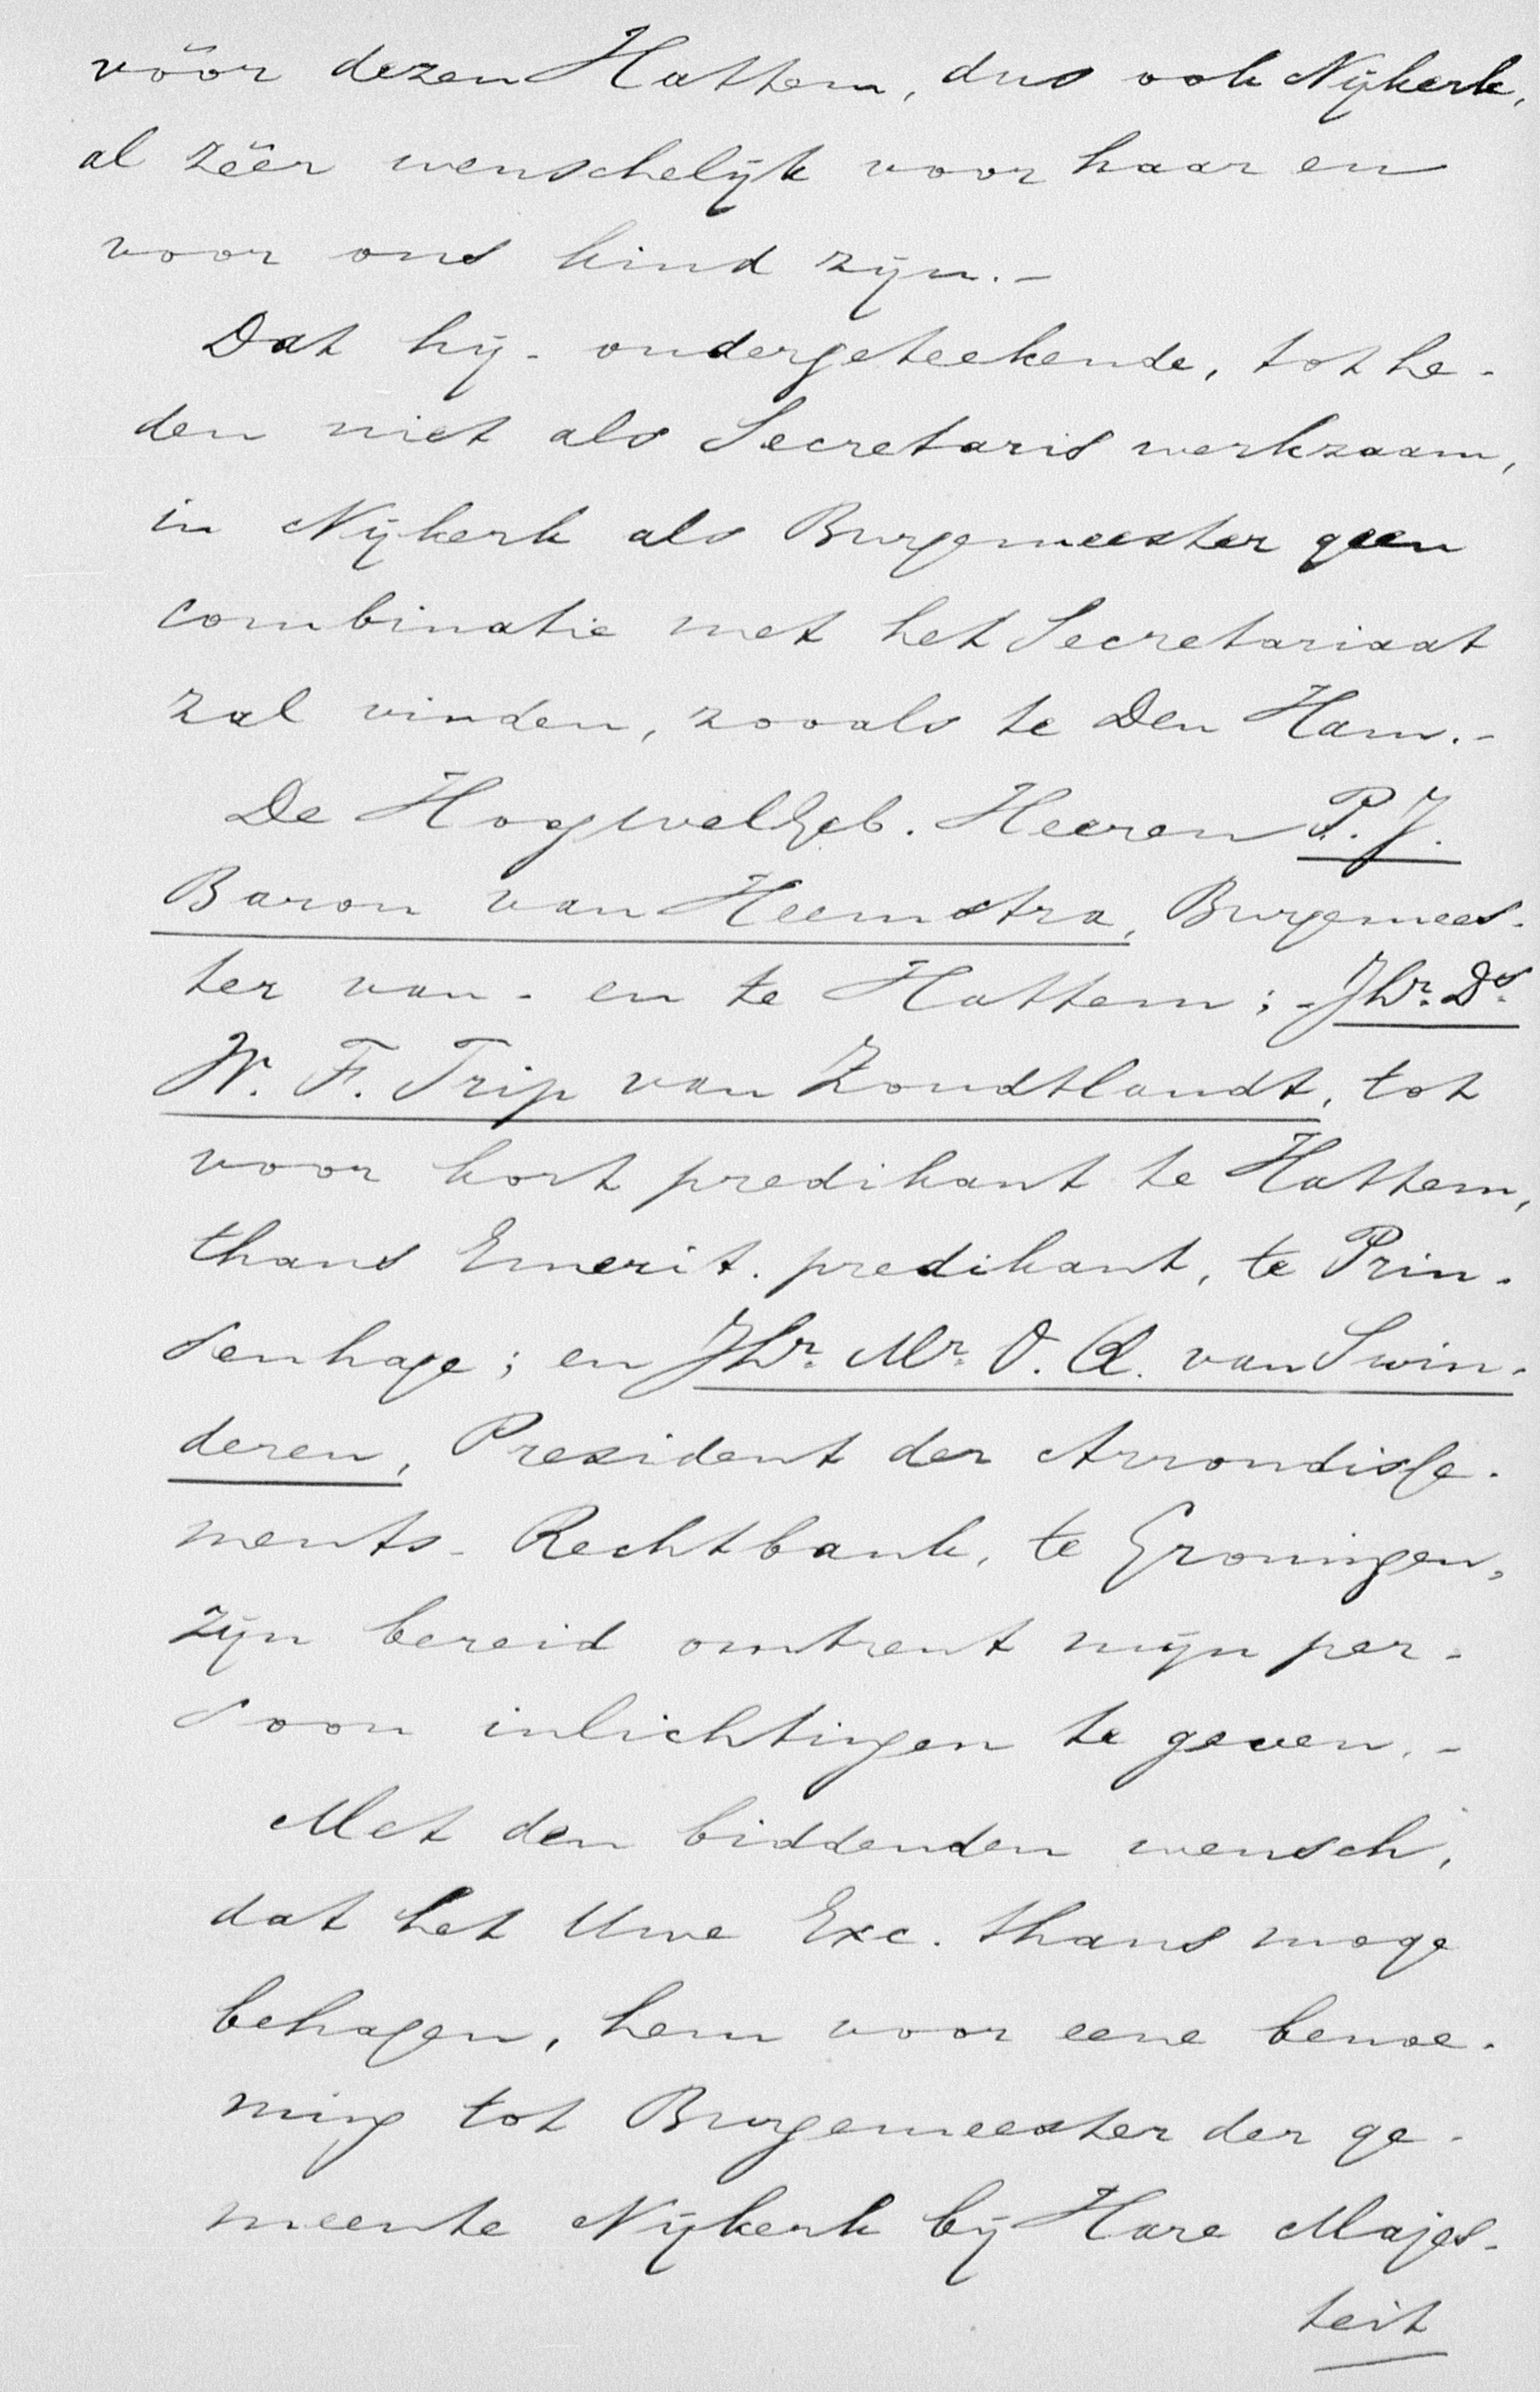 vóór dezen Hattem, dus ook Nijkerk,
al zéér wenschelijk voor haar en
voor ons kind zijn.-
Dat hij - ondergeteekende, tot he-
den niet als Secretaris werkzaam,
in Nijkerk als Burgemeester geen
combinatie met het Secretariaat
zal vinden, zooals te Den Ham.-
De HoogWelGeb. Heeren P. J.
Baron van Heemstra, Burgemees-
ter van - en te Hattem; - Jhr. Ds.
W. F. Trip van Zoudtlandt, tot
voor kort predikant te Hattem,
thans Emerit. predikant, te Prin-
senhage; en Jhr. Mr. O. Q. van Swin-
deren, President der Arrondisse-
ments - Rechtbank, te Groningen,
zijn bereid omtrent mijn per-
soon inlichtingen te geven.-
Met den biddenden wensch,
dat het Uwe Exc. thans moge
behagen, hem voor eene benoe-
ming tot Burgemeester der ge-
meente Nijkerk bij Hare Majes-
teit